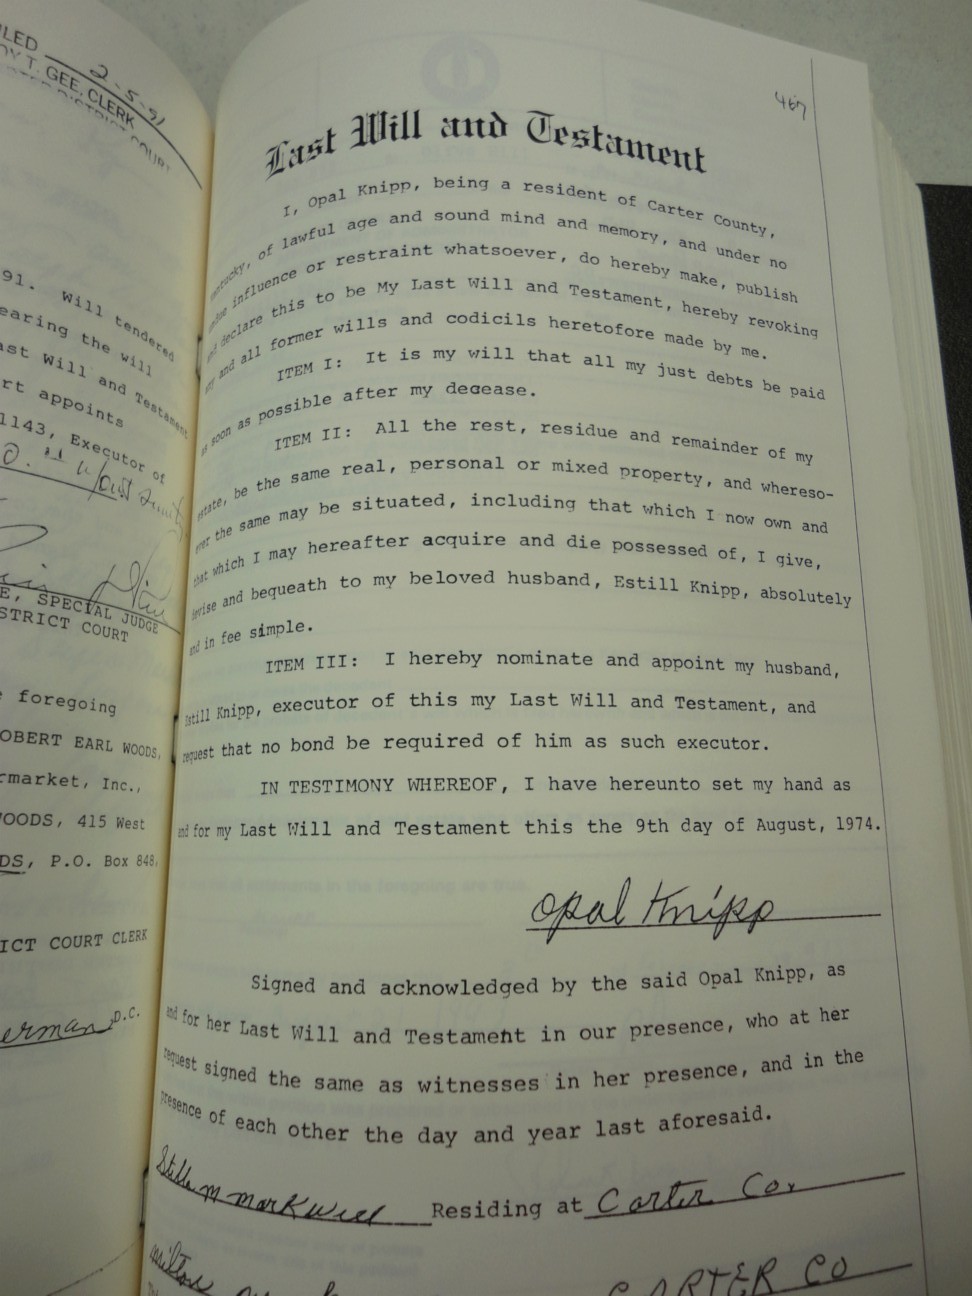 FILED 2-5-91
T. GEE, CLERK
DISTRICT COURT
91. Will tendered
earing the will
ast Will and Testament
rt appoints
1143, Executor of
E, SPECIAL JUDGE
STRICT COURT
foregoing
OBERT EARL WOODS,
rmarket, Inc.,
OODS, 415 West
DS, P.O. Box 848,
ICT COURT CLERK
erman D.C.
467
Last Will and Testament
I, Opal Knipp, being a resident of Carter County,
entucky, of lawful age and sound mind and memory, and under no
undue influence or restraint whatsoever, do hereby make, publish
and declare this to be My Last Will and Testament, hereby revoking
any and all former wills and codicils heretofore made by me.
ITEM I: It is my will that all my just debts be paid
as soon as possible after my decease.
ITEM II: All the rest, residue and remainder of my
estate, be the same real, personal or mixed property, and whereso-
ever the same may be situated, including that which I now own and
that which I may hereafter acquire and die possessed of, I give,
devise and bequeath to my beloved husband, Estill Knipp, absolutely
and in fee simple.
ITEM III: I hereby nominate and appoint my husband,
Estill Knipp, executor of this my Last Will and Testament, and
request that no bond be required of him as such executor.
IN TESTIMONY WHEREOF, I have hereunto set my hand as
and for my Last Will and Testament this the 9th day of August, 1974.
Opal Knipp
Signed and acknowledged by the said Opal Knipp, as
and for her Last Will and Testament in our presence, who at her
request signed the same as witnesses in her presence, and in the
presence of each other the day and year last aforesaid.
M Markwell Residing at Carter Co.
CARTER CO